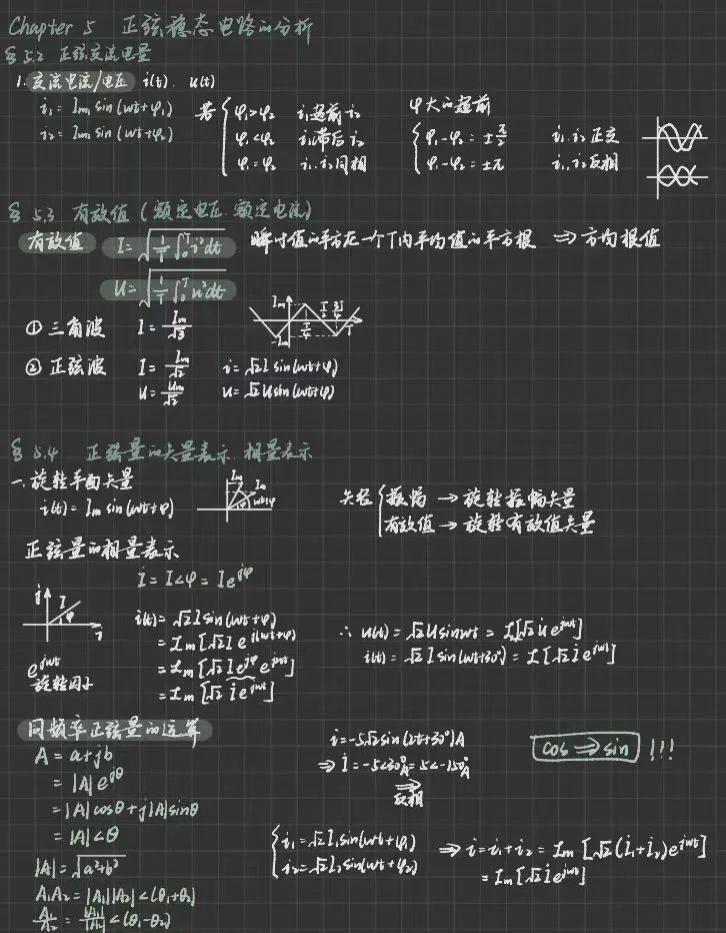 Chapter 5 正弦稳态电路的分析
§5.2 正弦交流电量
1. 交流电流/电压 i(t). u(t)
i₁ = Im₁ sin(ωt+φ₁)
i₂ = Im₂ sin(ωt+φ₂)
若 { φ₁>φ₂ i₁超前i₂
φ₁<φ₂ i₁滞后i₂
φ₁=φ₂ i₁.i₂同相
φ大的超前
{ φ₁-φ₂ = ±π/2 i₁.i₂正交
φ₁-φ₂ = ±π i₁.i₂反相
§5.3 有效值 (额定电压.额定电流)
有效值 I = √(1/T ∫₀ᵀ i²dt) 瞬时值的平方在一个T内平均值的平方根 ⇒ 方均根值
U = √(1/T ∫₀ᵀ u²dt)
① 三角波 I = Im/√3
Im
-Im
T/4 T/2 3T/4 T
② 正弦波 I = Im/√2 i = √2 I sin(ωt+φ)
U = Um/√2 u = √2 U sin(ωt+φ)
§5.4 正弦量的矢量表示.相量表示
一. 旋转平面矢量
i(t) = Im sin(ωt+φ)
Im Im
φ ωt+φ
矢径 { 振幅 → 旋转振幅矢量
有效值 → 旋转有效值矢量
正弦量的相量表示
İ = I∠φ = Ie^{jφ}
j I φ 1
e^{jωt}
旋转因子
i(t) = √2 I sin(ωt+φ)
= Im[√2 I e^{j(ωt+φ)}]
= Im[√2 I e^{jφ} e^{jωt}]
= Im[√2 İ e^{jωt}]
∴ u(t) = √2 U sinωt = I[√2 U̇ e^{jωt}]
i(t) = √2 I sin(ωt+30°) = I[√2 İ e^{jωt}]
同频率正弦量的运算
A = a+jb
= |A| e^{jθ}
= |A| cosθ + j|A| sinθ
= |A|∠θ
|A| = √(a²+b²)
A₁A₂ = |A₁||A₂|∠(θ₁+θ₂)
A₁/A₂ = |A₁|/|A₂| ∠(θ₁-θ₂)
i = -5√2 sin(2t+30°)A
⇒ İ = -5∠30°A = 5∠-150°A
⇒
反相
cos ⇒ sin !!!
{ i₁ = √2 I₁ sin(ωt+φ₁)
i₂ = √2 I₂ sin(ωt+φ₂)
⇒ i = i₁+i₂ = Im[√2(İ₁+İ₂)e^{jωt}]
= Im[√2 İ e^{jωt}]